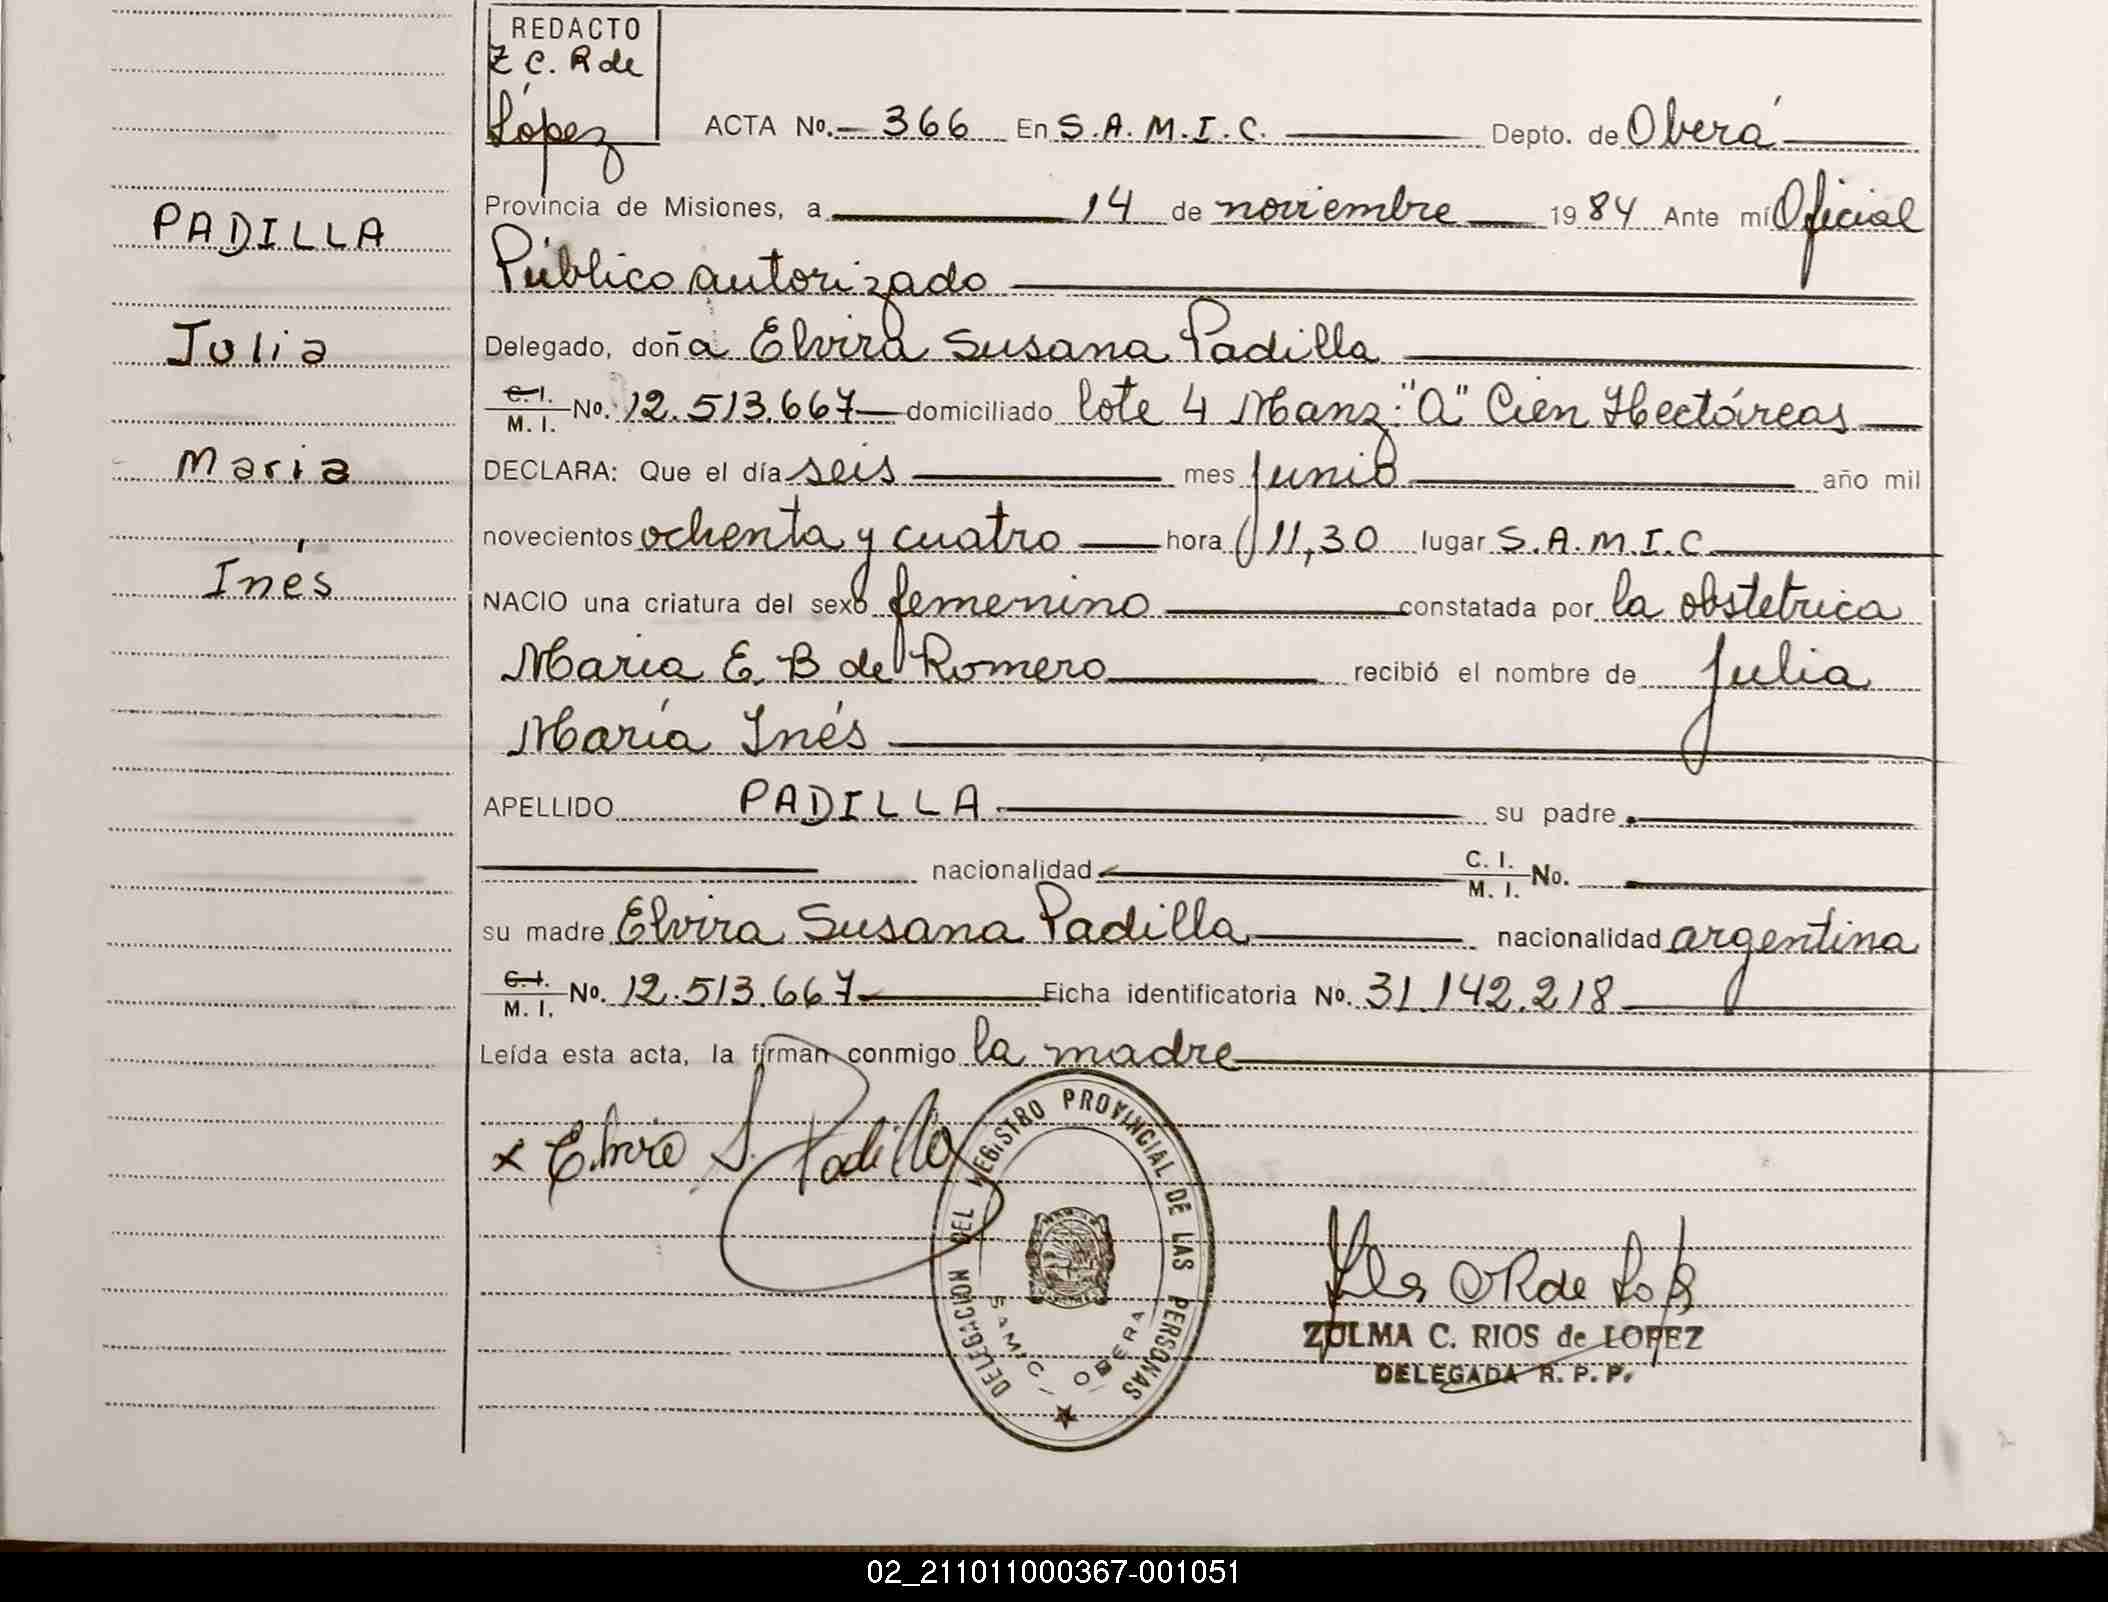 REDACTO
Z C. R de
López
ACTA No. 366 En S.A.M.I.C. Depto. de Oberá
Provincia de Misiones, a 14 de noviembre 1984 Ante mí Oficial
Público autorizado
Delegado, doña Elvira Susana Padilla
C. I. / M. I. No. 12.513.667 domiciliado lote 4 Manz: "A" Cien Hectáreas
DECLARA: Que el día seis mes Junio año mil
novecientos ochenta y cuatro hora 11,30 lugar S.A.M.I.C.
NACIO una criatura del sexo femenino constatada por la obstetrica
María E. B de Romero recibió el nombre de Julia
María Inés
APELLIDO PADILLA su padre
nacionalidad C. I. / M. I. No.
su madre Elvira Susana Padilla nacionalidad argentina
C. I. / M. I. No. 12.513.667 Ficha identificatoria No. 31.142.218
Leída esta acta, la firman conmigo la madre
PADILLA
Julia
Maria
Inés
x Elvira S. Padilla
DELEGACION DEL REGISTRO PROVINCIAL DE LAS PERSONAS
SAMIC - OBERA
ZULMA C. RIOS de LOPEZ
DELEGADA R. P. P.
02_211011000367-001051